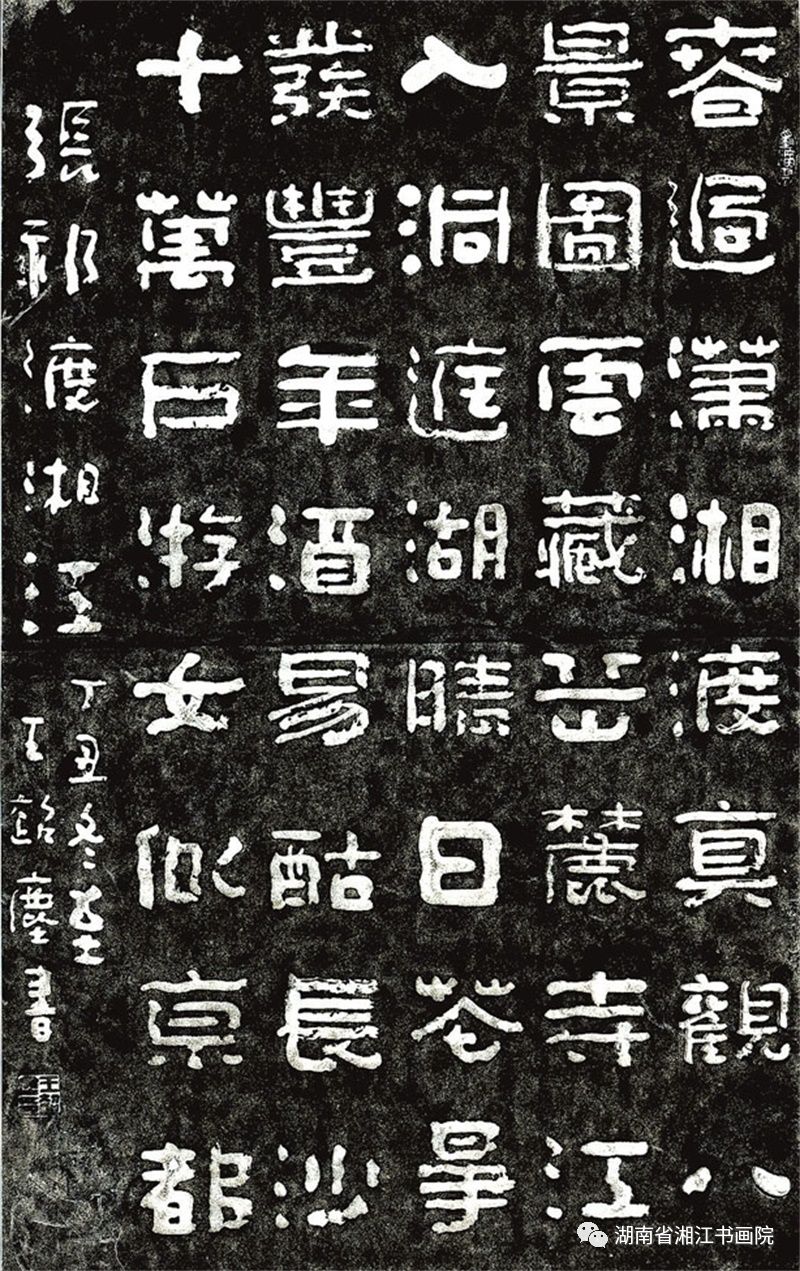 春過瀟湘渡真觀八
景圖雲藏岳麓寺江
入洞庭湖晴日花爭
發豐年酒易酤長沙
十萬户游女似京都
張祁渡湘江
丁丑冬至
王超塵書
湖南省湘江书画院